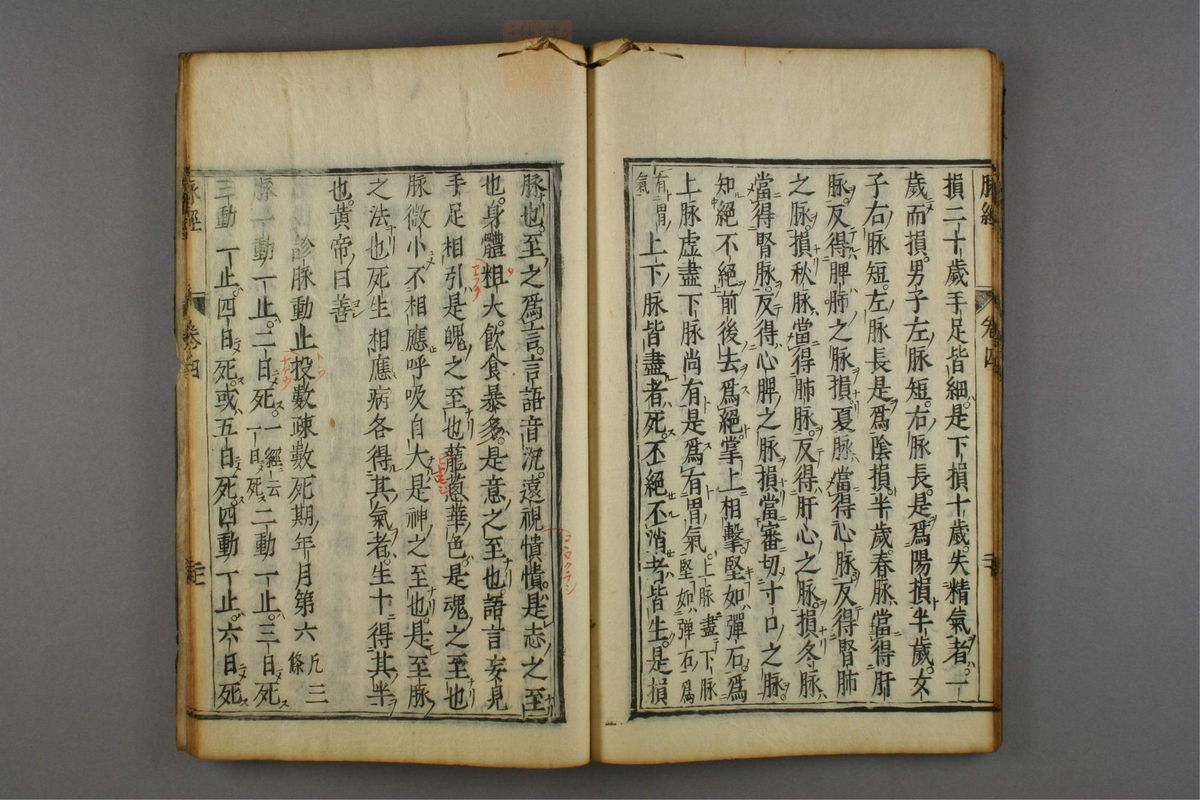 脉經 卷四
損二十歲手足皆細是下損十歲失精氣者一
歲而損男子左脉短右脉長是爲陽損半歲女
子右脉短左脉長是爲陰損半歲春脉當得肝
脉反得脾肺之脉損夏脉當得心脉反得腎肺
之脉損秋脉當得肺脉反得肝心之脉損冬脉
當得腎脉反得心脾之脉損當審切寸口之脉
知絕不絕前後去爲絕掌上相擊堅如彈石爲
上脉虛盡下脉尚有是爲有胃氣上脉盡下脉堅如彈石爲
有胃氣上下脉皆盡者死不絕不消者皆生是損
脉也至之爲言言語音況遠視憒憒是志之至
也身體粗大飲食暴多是意之至也語言妄見
手足相引是魄之至也蘢蔥華色是魂之至也
脉微小不相應呼吸自大是神之至也是至脉
之法也死生相應病各得其氣者生十得其半
也黃帝曰善
診脉動止投數疎數死期年月第六 凡三條
脉一動一止二日死一經云一日死二動一止三日死
三動一止四日死或五日死四動一止六日死
脉經 卷四